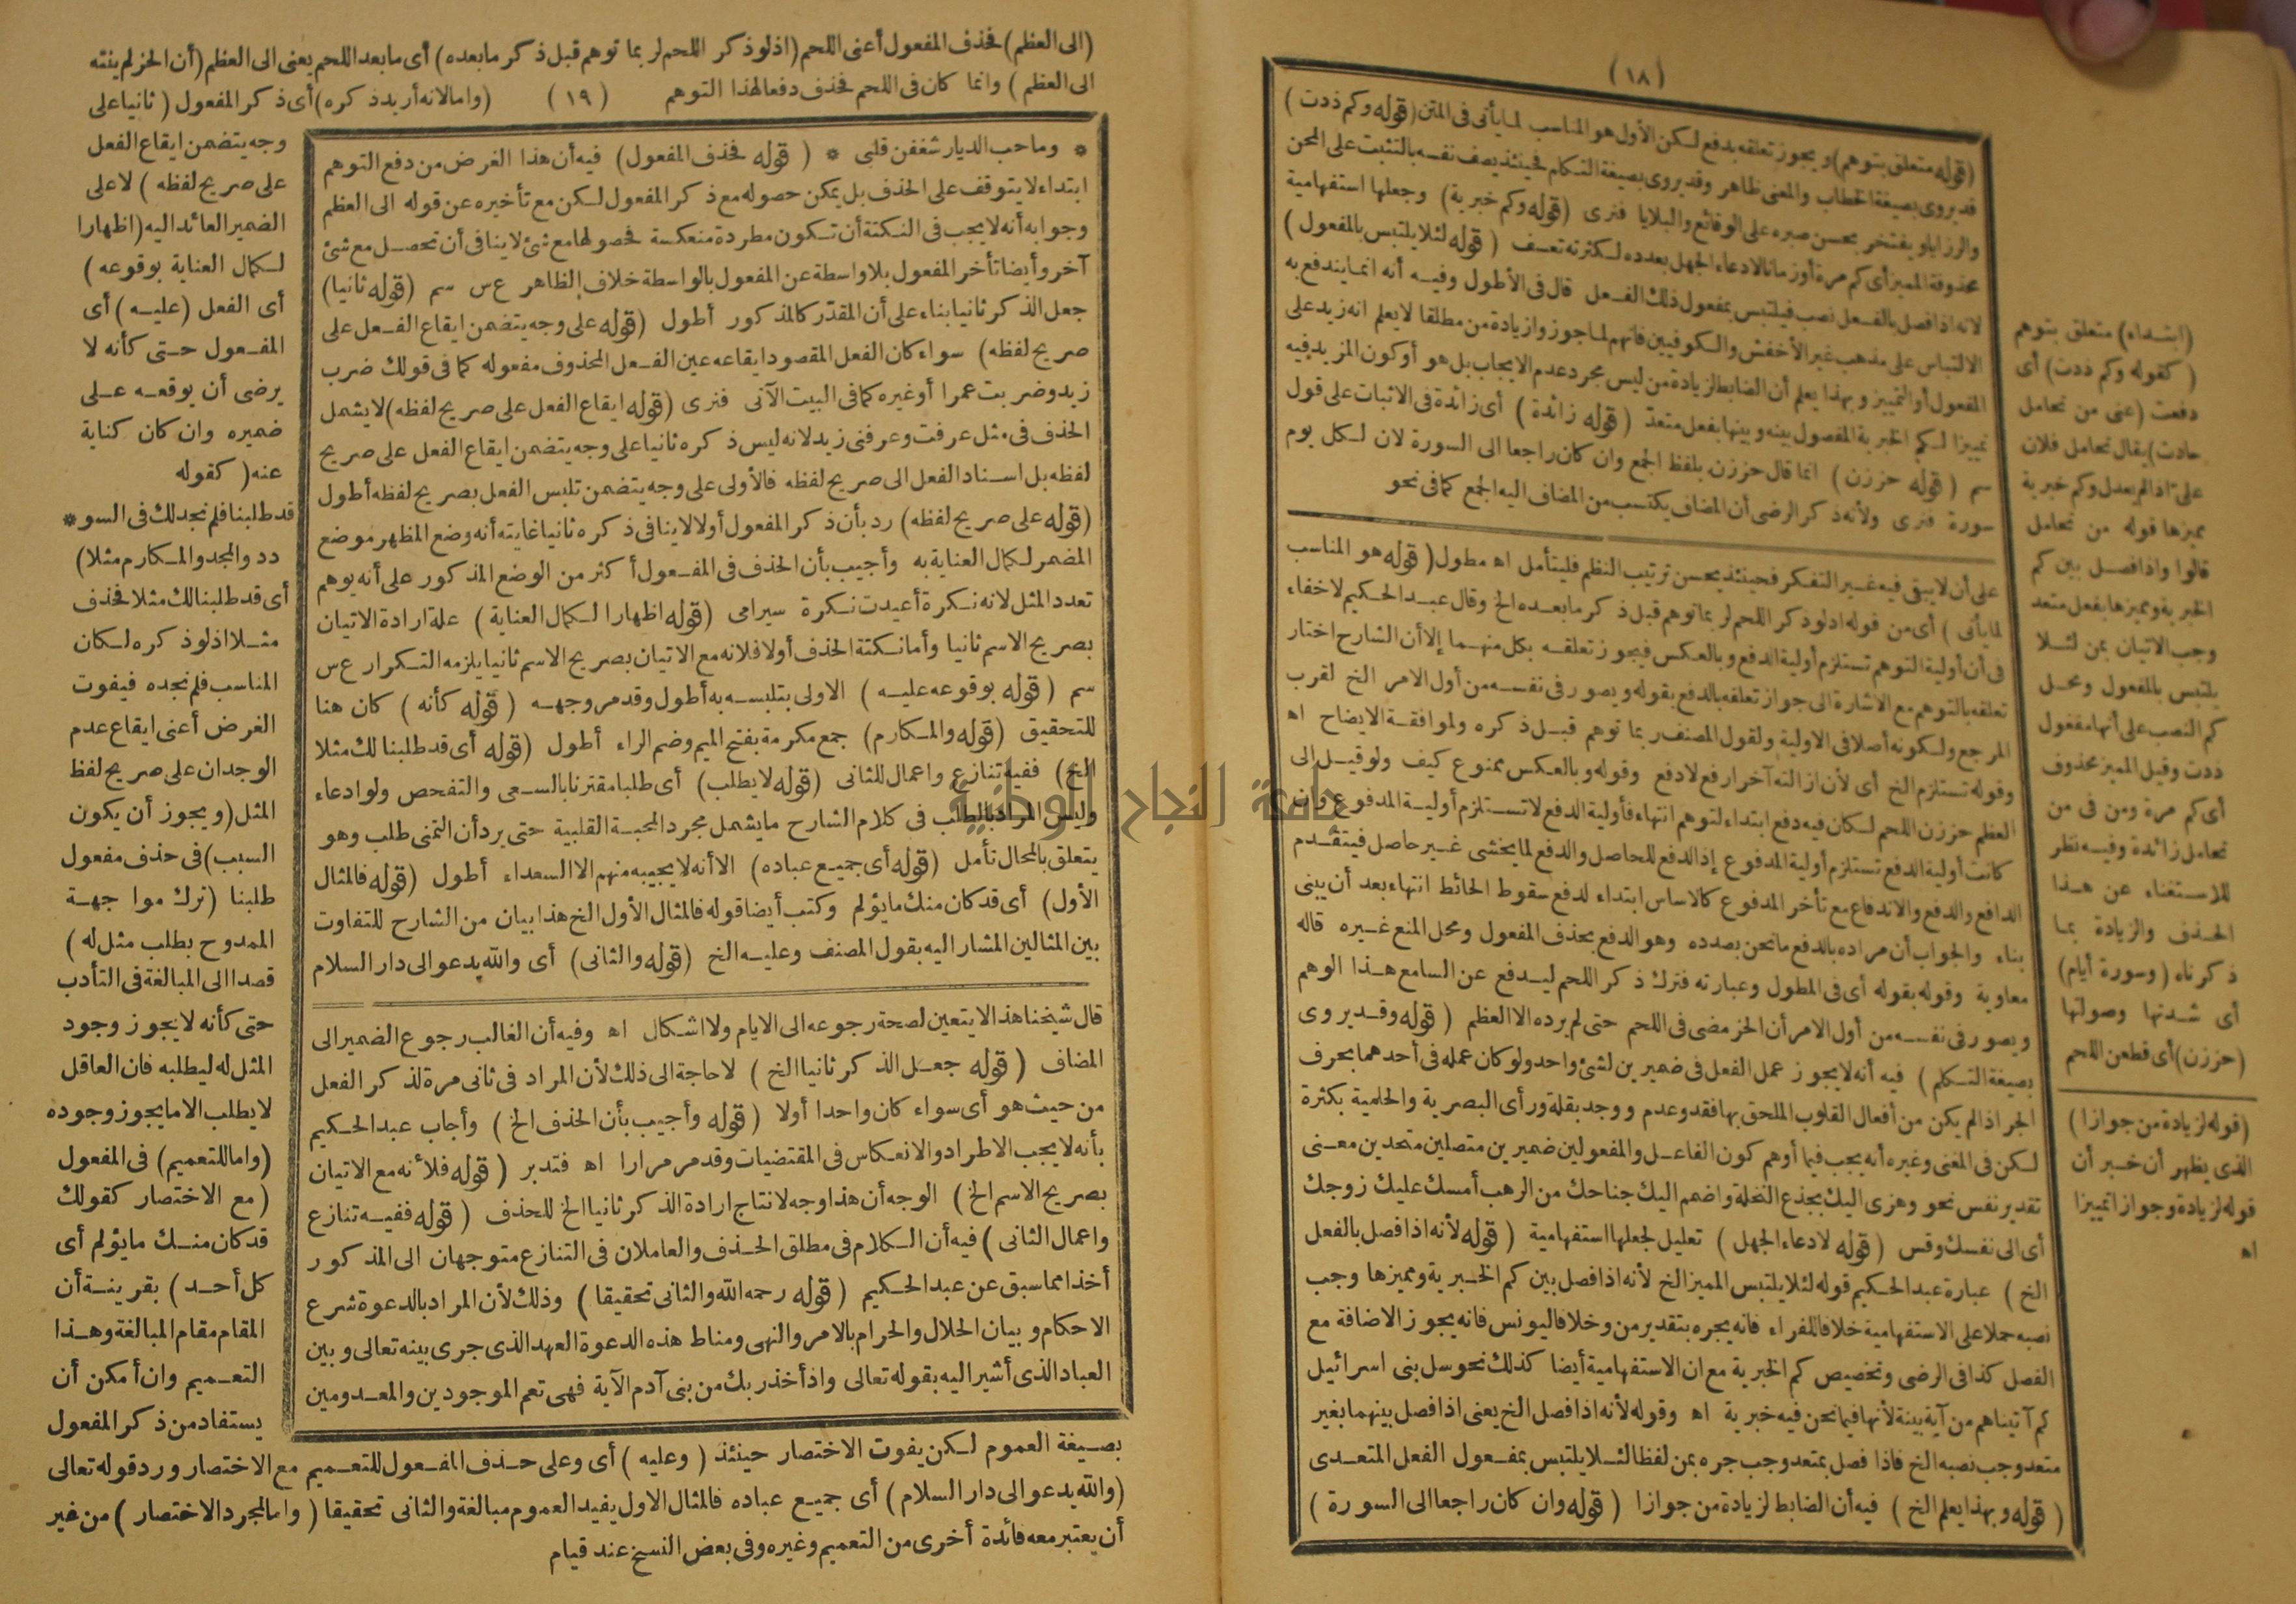 (١٨)
(قوله متعلق بتوهم) ويجوز تعلقه بدفع لكن الأول هو المناسب لما يأتى فى المتن (قوله وكم ذدت)
قد يروى بصيغة الخطاب والمعنى ظاهر وقد يروى بصيغة التكلم فحينئذ يصف نفسه بالتثبت على المحن
والرزايا ويفتخر بحسن صبره على الوقائع والبلايا فنرى (قوله وكم خبرية) وجعلها استفهامية
محذوفة المميز أى كم مرة أو زمانا لادعاء الجهل بعدده لكثرته تعسف (قوله لئلا يلتبس بالمفعول)
لانه اذا فصل بالفعل نصب فيلتبس بمفعول ذلك الفعل قال فى الأطول وفيه أنه انما يندفع به
الالتباس على مذهب غير الأخفش والكوفيين فانهم لما جوزوا زيادة من مطلقا لا يعلم انه زيد على
المفعول أو التمييز وبهذا يعلم أن الضابط لزيادة من ليس مجرد عدم الايجاب بل هو أو كون المزيد فيه
تمييزا لكم الخبرية المفصول بينه وبينها بفعل متعد (قوله زائدة) أى زائدة فى الاثبات على قول
سم (قوله حززن) انما قال حززن بلفظ الجمع وان كان راجعا الى السورة لان لكل يوم
سورة فنرى ولأنه ذكر الرضى أن المضاف يكتسب من المضاف اليه الجمع كما فى نحو
على أن لا يبقى فيه غير التفكر فحينئذ يحسن ترتيب النظم فليتأمل اه مطول (قوله هو المناسب
لما يأتى) أى من قوله اذ لو ذكر اللحم لربما توهم قبل ذكر ما بعده الخ وقال عبد الحكيم لا خفاء
فى أن أولية التوهم تستلزم أولية الدفع وبالعكس فيجوز تعلقه بكل منهما إلا أن الشارح اختار
تعلقه بالتوهم مع الاشارة الى جواز تعلقه بالدفع بقوله ويصور فى نفسه من أول الامر الخ لقرب
المرجع ولكونه أصلا فى الاولية ولقول المصنف ربما توهم قبل ذكره ولموافقة الايضاح اه
وقوله تستلزم الخ أى لأن ازالته آخرا رفع لا دفع وقوله وبالعكس ممنوع كيف ولو قيل الى
العظم حززن اللحم لكان فيه دفع ابتداء لتوهم انتهاء فأولية الدفع لا تستلزم أولية المدفوع وان
كانت أولية الدفع تستلزم أولية المدفوع إذ الدفع للحاصل والدفع لما يخشى غير حاصل فيتقدم
الدافع والدفع والاندفاع مع تأخر المدفوع كالاساس ابتداء لدفع سقوط الحائط انتهاء بعد أن يبنى
بناء والجواب أن مراده بالدفع ما نحن بصدده وهو الدفع بحذف المفعول ومحل المنع غيره قاله
معاوية وقوله بقوله أى فى المطول وعبارته فترك ذكر اللحم ليدفع عن السامع هذا الوهم
ويصور فى نفسه من أول الامر أن الحز مضى فى اللحم حتى لم يرده الا العظم (قوله وقد يروى
بصيغة التكلم) فيه أنه لا يجوز عمل الفعل فى ضميرين لشئ واحد ولو كان عمله فى أحدهما بحرف
الجر اذا لم يكن من أفعال القلوب الملحق بها فقد وعدم ووجد بقلة ورأى البصرية والحلمية بكثرة
لكن فى المغنى وغيره أنه يجب فيما أوهم كون الفاعل والمفعولين ضميرين متصلين متحدين معنى
تقدير نفس نحو وهزى اليك بجذع النخلة واضمم اليك جناحك من الرهب أمسك عليك زوجك
أى الى نفسك وقس (قوله لادعاء الجهل) تعليل لجعلها استفهامية (قوله لأنه اذا فصل بالفعل
الخ) عبارة عبد الحكيم قوله لئلا يلتبس المميز الخ لأنه اذا فصل بين كم الخبرية ومميزها وجب
نصبه حملا على الاستفهامية خلافا للفراء فانه يجره بتقدير من وخلافا ليونس فانه يجوز الاضافة مع
الفصل كذا فى الرضى وتخصيص كم الخبرية مع ان الاستفهامية أيضا كذلك نحو سل بنى اسرائيل
كم آتيناهم من آية بينة لأنها فيما نحن فيه خبرية اه وقوله لأنه اذا فصل الخ يعنى اذا فصل بينهما بغير
متعد وجب نصبه الخ فاذا فصل بمتعد وجب جره بمن لفظا لئلا يلتبس بمفعول الفعل المتعدى
(قوله وبهذا يعلم الخ) فيه أن الضابط لزيادة من جوازا (قوله وان كان راجعا الى السورة)
(ابتداء) متعلق بتوهم
(كقوله وكم ذدت) أى
دفعت (عنى من تحامل
حادث) يقال تحامل فلان
على اذا لم يعدل وكم خبرية
مميزها قوله من تحامل
قالوا واذا فصل بين كم
الخبرية ومميزها بفعل متعد
وجب الاتيان بمن لئلا
يلتبس بالمفعول ومحل
كم النصب على أنها مفعول
ذدت وقيل المميز محذوف
أى كم مرة ومن فى من
تحامل زائدة وفيه نظر
للاستغناء عن هذا
الحذف والزيادة بما
ذكرناه (وسورة أيام)
أى شدتها وصولتها
(حززن) أى قطعن اللحم
(قوله لزيادة من جوازا)
الذى يظهر أن خبر أن
قوله لزيادة وجوازا تمييزا
اه
(الى العظم) فحذف المفعول أعنى اللحم (اذ لو ذكر اللحم لربما توهم قبل ذكر ما بعده) أى ما بعد اللحم يعنى الى العظم (أن الحز لم ينته
الى العظم) وانما كان فى اللحم فحذف دفعا لهذا التوهم (١٩) (واما لانه أريد ذكره) أى ذكر المفعول (ثانيا على
وجه يتضمن ايقاع الفعل
على صريح لفظه) لا على
الضمير العائد اليه (اظهارا
لكمال العناية بوقوعه)
أى الفعل (عليه) أى
المفعول حتى كأنه لا
يرضى أن يوقعه على
ضميره وان كان كناية
عنه (كقوله
قد طلبنا فلم نجد لك فى السو*
دد والمجد والمكارم مثلا)
أى قد طلبنا لك مثلا فحذف
مثلا اذ لو ذكره لكان
المناسب فلم نجده فيفوت
الغرض أعنى ايقاع عدم
الوجدان على صريح لفظ
المثل (ويجوز أن يكون
السبب) فى حذف مفعول
طلبنا (ترك مواجهة
الممدوح بطلب مثل له)
قصدا الى المبالغة فى التأدب
حتى كأنه لا يجوز وجود
المثل له ليطلبه فان العاقل
لا يطلب الا ما يجوز وجوده
(واما للتعميم) فى المفعول
(مع الاختصار كقولك
قد كان منك ما يؤلم أى
كل أحد) بقرينة أن
المقام مقام المبالغة وهذا
التعميم وان أمكن أن
يستفاد من ذكر المفعول
* وما حب الديار شغفن قلبى * (قوله فحذف المفعول) فيه أن هذا الغرض من دفع التوهم
ابتداء لا يتوقف على الحذف بل يمكن حصوله مع ذكر المفعول لكن مع تأخيره عن قوله الى العظم
وجوابه أنه لا يجب فى النكتة أن تكون مطردة منعكسة فحصولها مع شئ لا ينافى أن تحصل مع شئ
آخر وأيضا تأخر المفعول بلا واسطة عن المفعول بالواسطة خلاف الظاهر ع س سم (قوله ثانيا)
جعل الذكر ثانيا بناء على أن المقدر كالمذكور أطول (قوله على وجه يتضمن ايقاع الفعل على
صريح لفظه) سواء كان الفعل المقصود ايقاعه عين الفعل المحذوف مفعوله كما فى قولك ضرب
زيد وضربت عمرا أو غيره كما فى البيت الآتى فنرى (قوله ايقاع الفعل على صريح لفظه) لا يشمل
الحذف فى مثل عرفت وعرفنى زيد لانه ليس ذكره ثانيا على وجه يتضمن ايقاع الفعل على صريح
لفظه بل اسناد الفعل الى صريح لفظه فالأولى على وجه يتضمن تلبس الفعل بصريح لفظه أطول
(قوله على صريح لفظه) رد بأن ذكر المفعول أولا لا ينافى ذكره ثانيا غايته أنه وضع المظهر موضع
المضمر لكمال العناية به وأجيب بأن الحذف فى المفعول أكثر من الوضع المذكور على أنه يوهم
تعدد المثل لانه نكرة أعيدت نكرة سيرامى (قوله اظهارا لكمال العناية) علة ارادة الاتيان
بصريح الاسم ثانيا وأما نكتة الحذف أولا فلانه مع الاتيان بصريح الاسم ثانيا يلزمه التكرار ع س
سم (قوله بوقوعه عليه) الاولى بتلبسه به أطول وقد مر وجهه (قوله كأنه) كان هنا
للتحقيق (قوله والمكارم) جمع مكرمة بفتح الميم وضم الراء أطول (قوله أى قد طلبنا لك مثلا
الخ) ففيه تنازع واعمال للثانى (قوله لا يطلب) أى طلبا مقترنا بالسعى والتفحص ولو ادعاء
وليس المراد بالطلب فى كلام الشارح ما يشمل مجرد المحبة القلبية حتى يرد أن التمنى طلب وهو
يتعلق بالمحال تأمل (قوله أى جميع عباده) الا أنه لا يجيبه منهم الا السعداء أطول (قوله فالمثال
الأول) أى قد كان منك ما يؤلم وكتب أيضا قوله فالمثال الأول الخ هذا بيان من الشارح للتفاوت
بين المثالين المشار اليه بقول المصنف وعليه الخ (قوله والثانى) أى والله يدعو الى دار السلام
قال شيخنا هذا لا يتعين لصحة رجوعه الى الايام ولا اشكال اه وفيه أن الغالب رجوع الضمير الى
المضاف (قوله جعل الذكر ثانيا الخ) لا حاجة الى ذلك لأن المراد فى ثانى مرة لذكر الفعل
من حيث هو أى سواء كان واحدا أولا (قوله وأجيب بأن الحذف الخ) وأجاب عبد الحكيم
بأنه لا يجب الاطراد والانعكاس فى المقتضيات وقد مر مرارا اه فتدبر (قوله فلأنه مع الاتيان
بصريح الاسم الخ) الوجه أن هذا وجه لانتاج ارادة الذكر ثانيا الخ للحذف (قوله ففيه تنازع
واعمال الثانى) فيه أن الكلام فى مطلق الحذف والعاملان فى التنازع متوجهان الى المذكور
أخذا مما سبق عن عبد الحكيم (قوله رحمه الله والثانى تحقيقا) وذلك لأن المراد بالدعوة شرع
الاحكام وبيان الحلال والحرام بالامر والنهى ومناط هذه الدعوة العهد الذى جرى بينه تعالى وبين
العباد الذى أشير اليه بقوله تعالى واذ أخذ ربك من بنى آدم الآية فهى تعم الموجودين والمعدومين
بصيغة العموم لكن يفوت الاختصار حينئذ (وعليه) أى وعلى حذف المفعول للتعميم مع الاختصار ورد قوله تعالى
(والله يدعو الى دار السلام) أى جميع عباده فالمثال الاول يفيد العموم مبالغة والثانى تحقيقا (واما لمجرد الاختصار) من غير
أن يعتبر معه فائدة أخرى من التعميم وغيره وفى بعض النسخ عند قيام
جامعة النجاح الوطنية